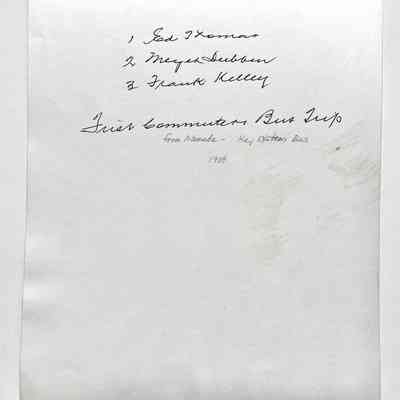 1 Ed Thomas
2 Meyer Dubbin
3 Frank Kelley
First Commuters Bus Trip
from - Key System Bus